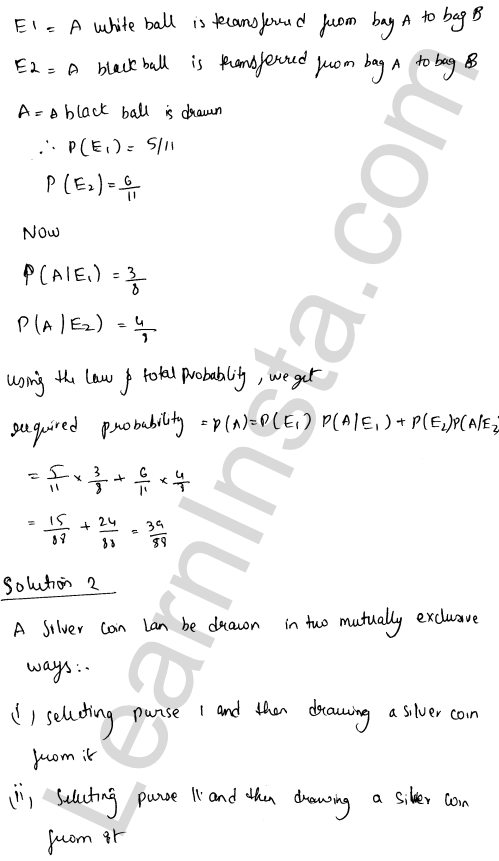 E1 = A white ball is transferred from bag A to bag B
E2 = A black ball is transferred from bag A to bag B
A = A black ball is drawn
∴ P(E₁) = 5/11
P(E₂) = 6/11
Now
P(A|E₁) = 3/8
P(A|E₂) = 4/8
using the law of total probability, we get
required probability = P(A) = P(E₁) P(A|E₁) + P(E₂)P(A|E₂
= 5/11 × 3/8 + 6/11 × 4/8
= 15/88 + 24/88 = 39/88
Solution 2
A Silver coin can be drawn in two mutually exclusive
ways:-
(i) selecting purse I and then drawing a silver coin
from it
(ii) Selecting purse II and then drawing a silver coin
from it
LearnInsta.com